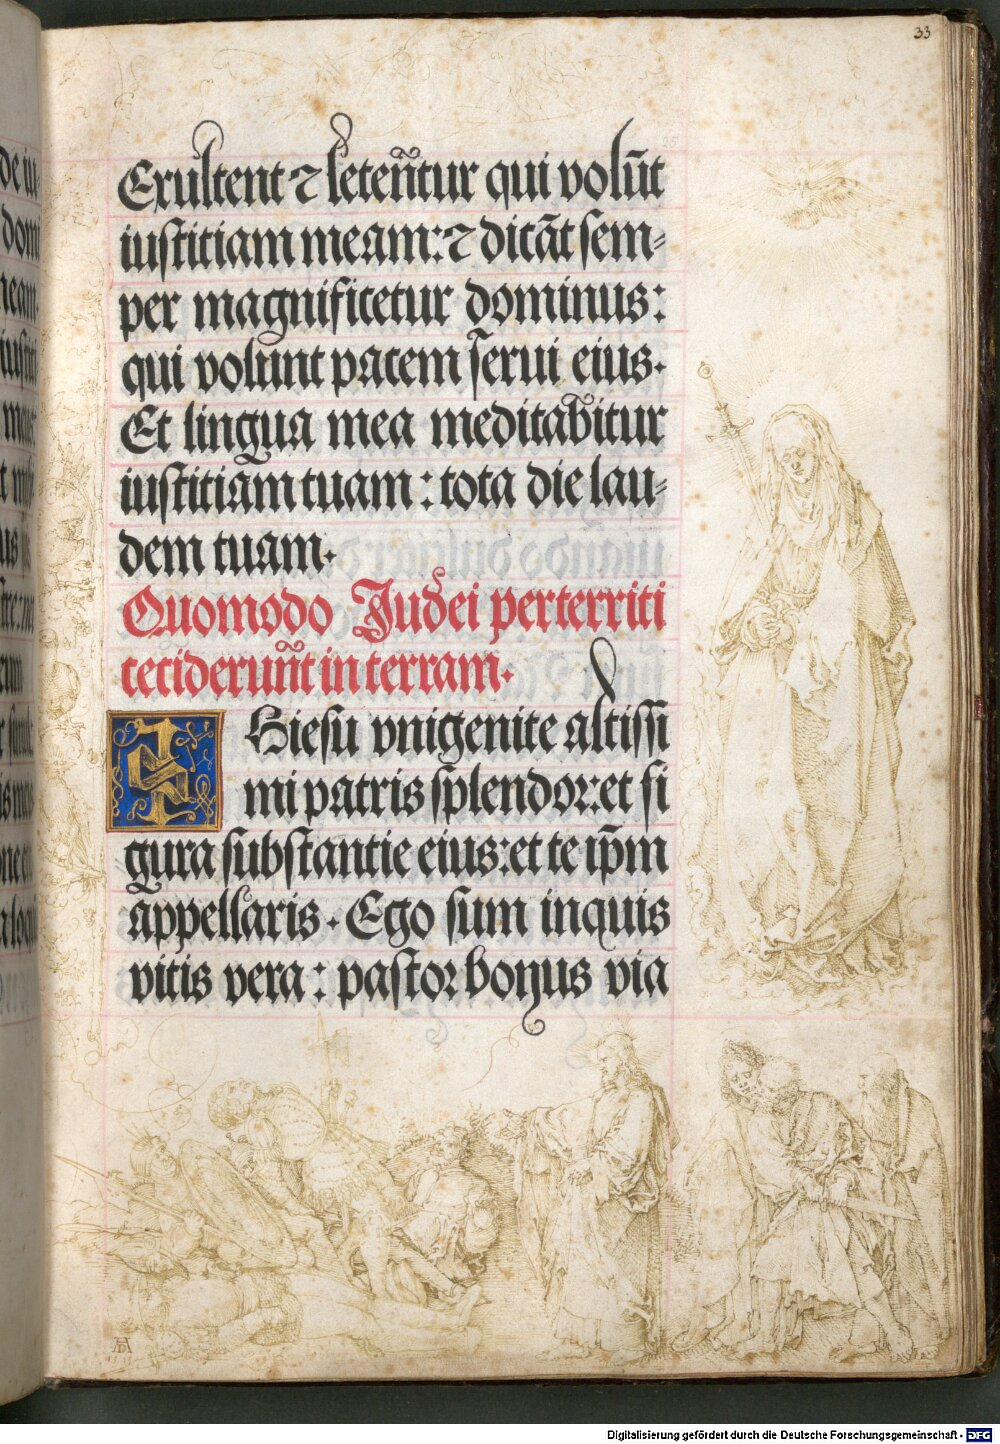 33
25
Exultent ⁊ letent̃ur qui volũt
iustitiam meam: ⁊ dicãt sem=
per magnificetur dominus:
qui volunt pacem serui eius.
Et lingua mea meditabitur
iustitiam tuam: tota die lau=
dem tuam.
Quomodo Judei perterriti
ceciderunt̃ in terram.
S Hiesu vnigenite altissi
mi patris splendor: et fi
gura substantie eius: et te ip̃m
appellaris. Ego sum inquis
vitis vera: pastor bonus via
AD
Digitalisierung gefördert durch die Deutsche Forschungsgemeinschaft - DFG